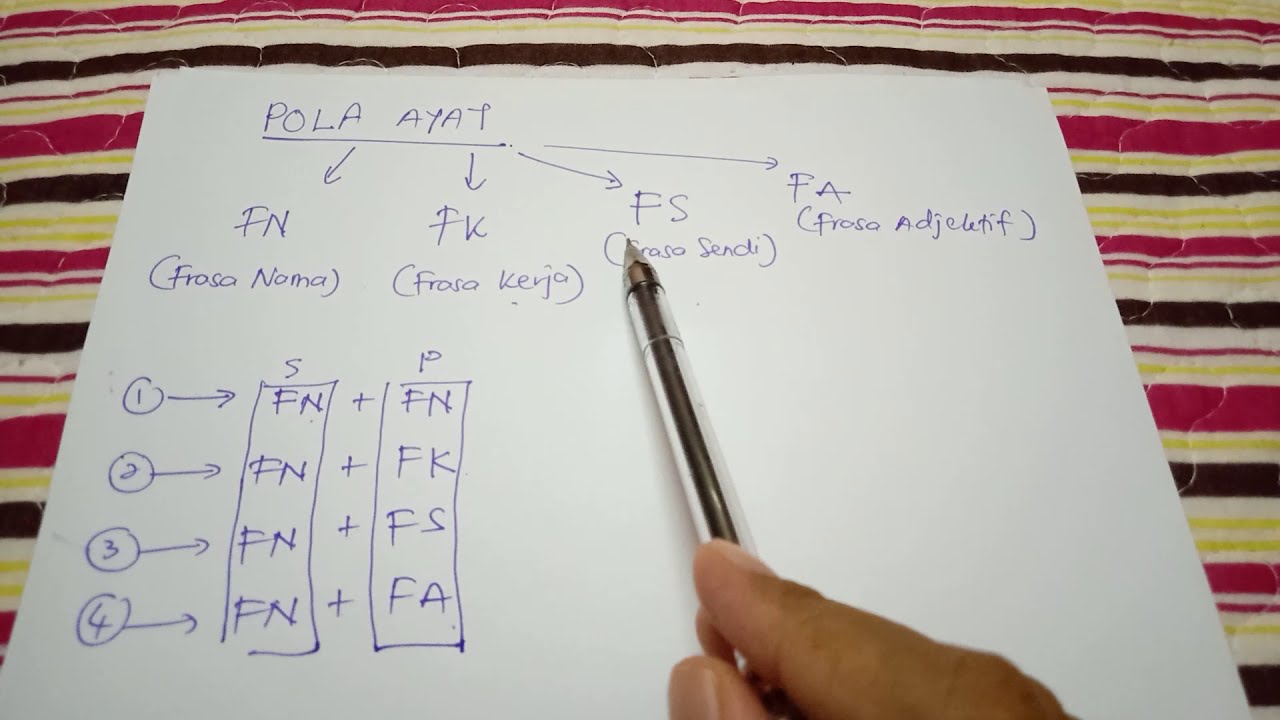 POLA AYAT
FN FK FS FA
(Frasa Nama) (Frasa Kerja) (Frasa Sendi) (Frasa Adjektif)
S P
1 → FN + FN
2 → FN + FK
3 → FN + FS
4 → FN + FA